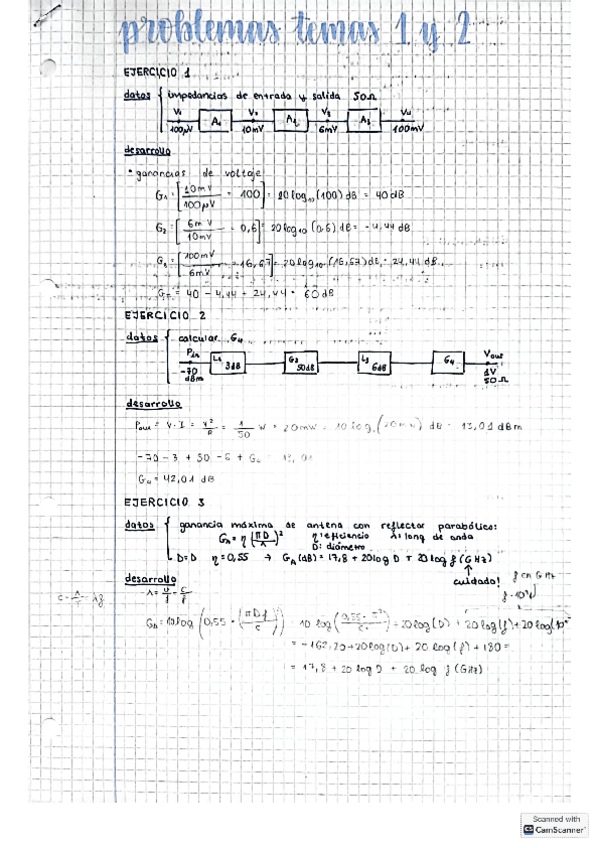 problemas temas 1 y 2
EJERCICIO 1
datos { impedancias de entrada y salida 50Ω
V₁ V₂ V₃ V₄
A₁ A₂ A₃
100μV 10mV 6mV 100mV
desarrollo
• ganancias de voltaje
G₁ = [10mV/100μV = 100] = 20log₁₀(100) dB = 40 dB
G₂ = [6mV/10mV = 0,6] = 20log₁₀(0,6) dB = -4,44 dB
G₃ = [100mV/6mV = 16,67] = 20log₁₀(16,67) dB = 24,44 dB
G_T = 40 - 4,44 + 24,44 = 60 dB
EJERCICIO 2
datos { calcular G₄
Pin L₁ 3dB G₂ 50dB L₃ 6dB G₄ Vout
-70 dBm 1V 50Ω
desarrollo
Pout = V·I = V²/R = 1/50 W = 20mW = 10 log (20mW) dB = 13,01 dBm
-70 - 3 + 50 - 6 + G₄ = 13,01
G₄ = 42,01 dB
EJERCICIO 3
datos { ganancia máxima de antena con reflector parabólico:
G_A = η (πD/λ)² η: eficiencia λ = long de onda
D: diámetro
D=D η=0,55 → G_A(dB) = 17,8 + 20log D + 20log f(GHz)
↑
cuidado! f en GHz
desarrollo
G_A = 10log (0,55 · (πDf/c)²) = 10 log(0,55·π²/c²) + 20log(D) + 20log(f) + 20log(10⁹
= -162,20 + 20log(D) + 20 log(f) + 180 =
= 17,8 + 20 log D + 20 log f (GHz)
Scanned with
CamScanner